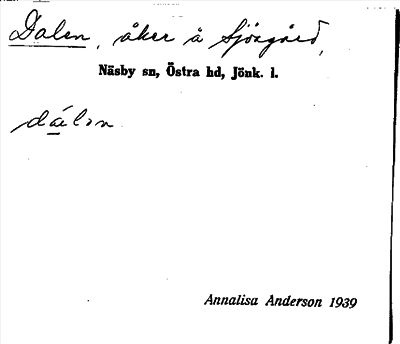 Dalen, åker å Sjöagård,
Näsby sn, Östra hd, Jönk. l.
dálən
Annalisa Anderson 1939